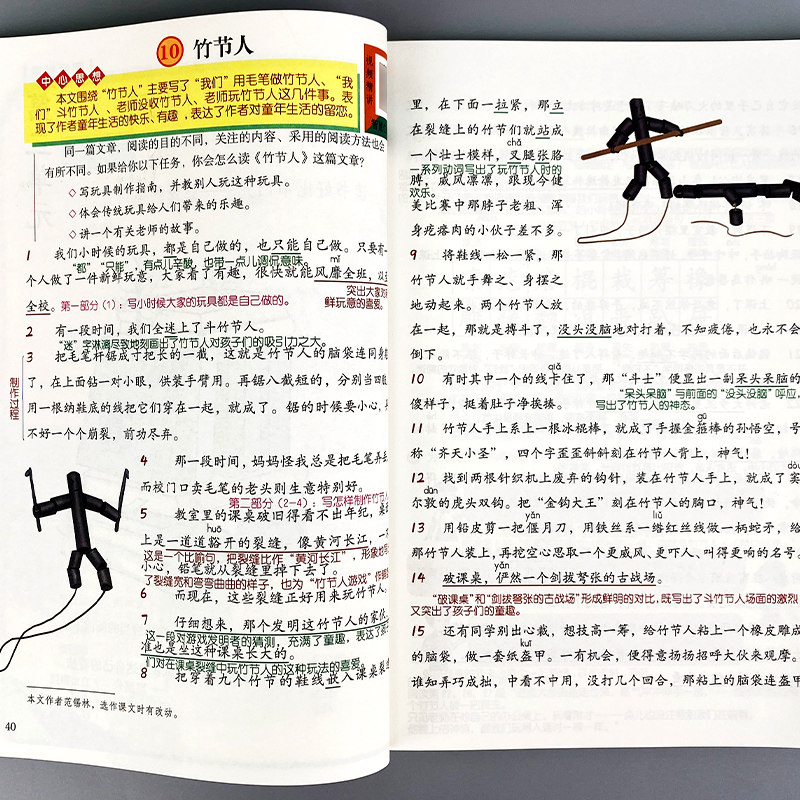 10 竹节人
中心思想
视频精讲
本文围绕“竹节人”主要写了“我们”用毛笔做竹节人、“我
们”斗竹节人、老师没收竹节人、老师玩竹节人这几件事。表
现了作者童年生活的快乐、有趣，表达了作者对童年生活的留恋。
同一篇文章，阅读的目的不同，关注的内容、采用的阅读方法也会
有所不同。如果给你以下任务，你会怎么读《竹节人》这篇文章？
◇写玩具制作指南，并教别人玩这种玩具。
◇体会传统玩具给人们带来的乐趣。
◇讲一个有关老师的故事。
1 我们小时候的玩具，都是自己做的，也只能自己做。只要有一
“都”“只能”，有点儿辛酸，也带一点儿调侃意味。
mǐ
个人做了一件新鲜玩意，大家看了有趣，很快就能风靡全班，以至
突出大家对
全校。第一部分（1）：写小时候大家的玩具都是自己做的。
鲜玩意的喜爱。
2 有一段时间，我们全迷上了斗竹节人。
“迷”字淋漓尽致地刻画出了竹节人对孩子们的吸引力之大。
制作过程
3 把毛笔杆锯成寸把长的一截，这就是竹节人的脑袋连同身躯
了，在上面钻一对小眼，供装手臂用。再锯八截短的，分别当四肢
用一根纳鞋底的线把它们穿在一起，就成了。锯的时候要小心，
不好一个个崩裂，前功尽弃。
4 那一段时间，妈妈怪我总是把毛笔弄丢
而校门口卖毛笔的老头则生意特别好。
第二部分（2-4）：写怎样制作竹节人
5 教室里的课桌破旧得看不出年纪，桌
huō
上是一道道豁开的裂缝，像黄河长江，
这是一个比喻句，把裂缝比作“黄河长江”，形象地写
小心，铅笔就从裂缝里掉下去了。
了裂缝宽和弯弯曲曲的样子，也为“竹节人游戏”作铺垫
6 而现在，这些裂缝正好用来玩竹节人。
7 仔细想来，那个发明这竹节人的家伙
这一段对游戏发明者的猜测，充满了童趣，表达了孩
准也是坐这种课桌长大的。
们对在课桌裂缝中玩竹节人的这种玩法的喜爱。
8 把穿着九个竹节的鞋线嵌入课桌裂缝
本文作者范锡林，选作课文时有改动。
40
里，在下面一拉紧，那立
在裂缝上的竹节们就站成
chǎ
一个壮士模样，叉腿张胳
一系列动词写出了玩竹节人时的
膊，威风凛凛，跟现今健
欢乐。
美比赛中那脖子老粗、浑
身疙瘩肉的小伙子差不多。
9 将鞋线一松一紧，那
竹节人就手舞之、身摆之
地动起来。两个竹节人放
在一起，那就是搏斗了，没头没脑地对打着，不知疲倦，也永不会
倒下。
qiǎ
10 有时其中一个的线卡住了，那“斗士”便显出一副呆头呆脑的
“呆头呆脑”与前面的“没头没脑”呼应，
傻样子，挺着肚子净挨揍。
写出了竹节人的神态。
gū
11 竹节人手上系上一根冰棍棒，就成了手握金箍棒的孙悟空，号
称“齐天小圣”，四个字歪歪斜斜刻在竹节人背上，神气！
dòu
12 找到两根针织机上废弃的钩针，装在竹节人手上，就成了窦
dūn
尔敦的虎头双钩。把“金钩大王”刻在竹节人的胸口，神气！
yǎn liǔ
13 用铅皮剪一把偃月刀，用铁丝系一绺红丝线做一柄蛇矛，给
那竹节人装上，再挖空心思取一个更威风、更吓人、叫得更响的名号。
yǎn
14 破课桌，俨然一个剑拔弩张的古战场。
“破课桌”和“剑拔弩张的古战场”形成鲜明的对比，既写出了斗竹节人场面的激烈
又突出了孩子们的童趣。
15 还有同学别出心裁，想技高一筹，给竹节人粘上一个橡皮雕成
kuī
的脑袋，做一套纸盔甲。一有机会，便得意扬扬招呼大伙来观摩。
谁知弄巧成拙，中看不中用，没打几个回合，那粘上的脑袋连盔甲